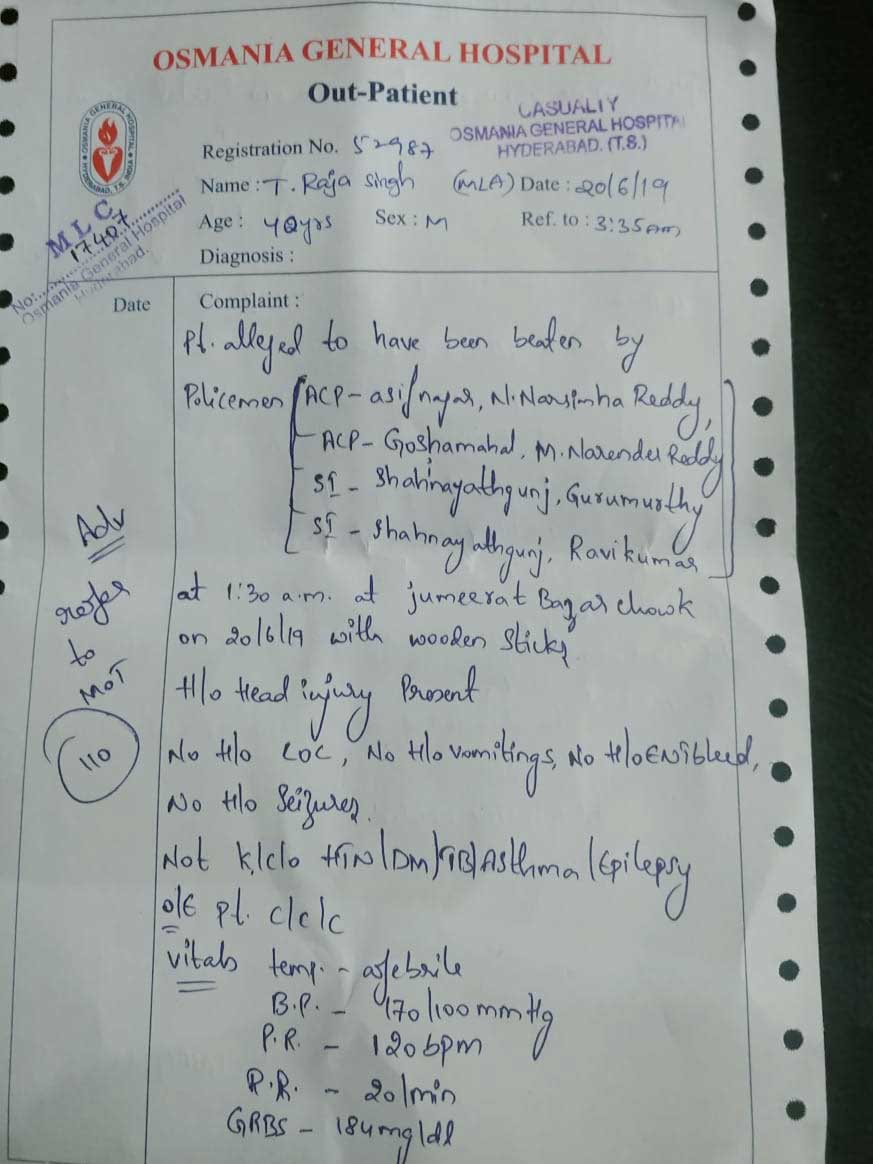 OSMANIA GENERAL HOSPITAL
Out-Patient
CASUALIY
OSMANIA GENERAL HOSPITAL
HYDERABAD. (T.S.)
OSMANIA GENERAL HOSPITAL
HYDERABAD, T.S. INDIA
Registration No. 52987
Name : T. Raja Singh (MLA) Date : 20/6/19
Age : 40yrs Sex : M Ref. to : 3:35am
Diagnosis :
M L C
No: 17407
Osmania General Hospital
Hyderabad.
Date Complaint :
Pt. alleged to have been beaten by
Policemen ACP - asifnagar, N. Narsimha Reddy,
ACP - Goshamahal, M. Narender Reddy
SI - Shahinayathgunj, Gurumurthy
SI - Shahnayathgunj, Ravikumar
at 1:30 a.m. at jumeerat Bazar chowk
on 20/6/19 with wooden Sticks
H/o Head injury Present
No H/o LOC, No H/o vomitings, No H/o ENT bleed,
No H/o Seizures.
Not k/c/o HTN/DM/TB/Asthma/Epilepsy
o/E pt. c/c/c
Vitals temp. - afebrile
B.P. - 170/100 mm Hg
P.R. - 120 bpm
R.R. - 20/min
GRBS - 184 mg/dl
Adv
refer
to
MOT
110